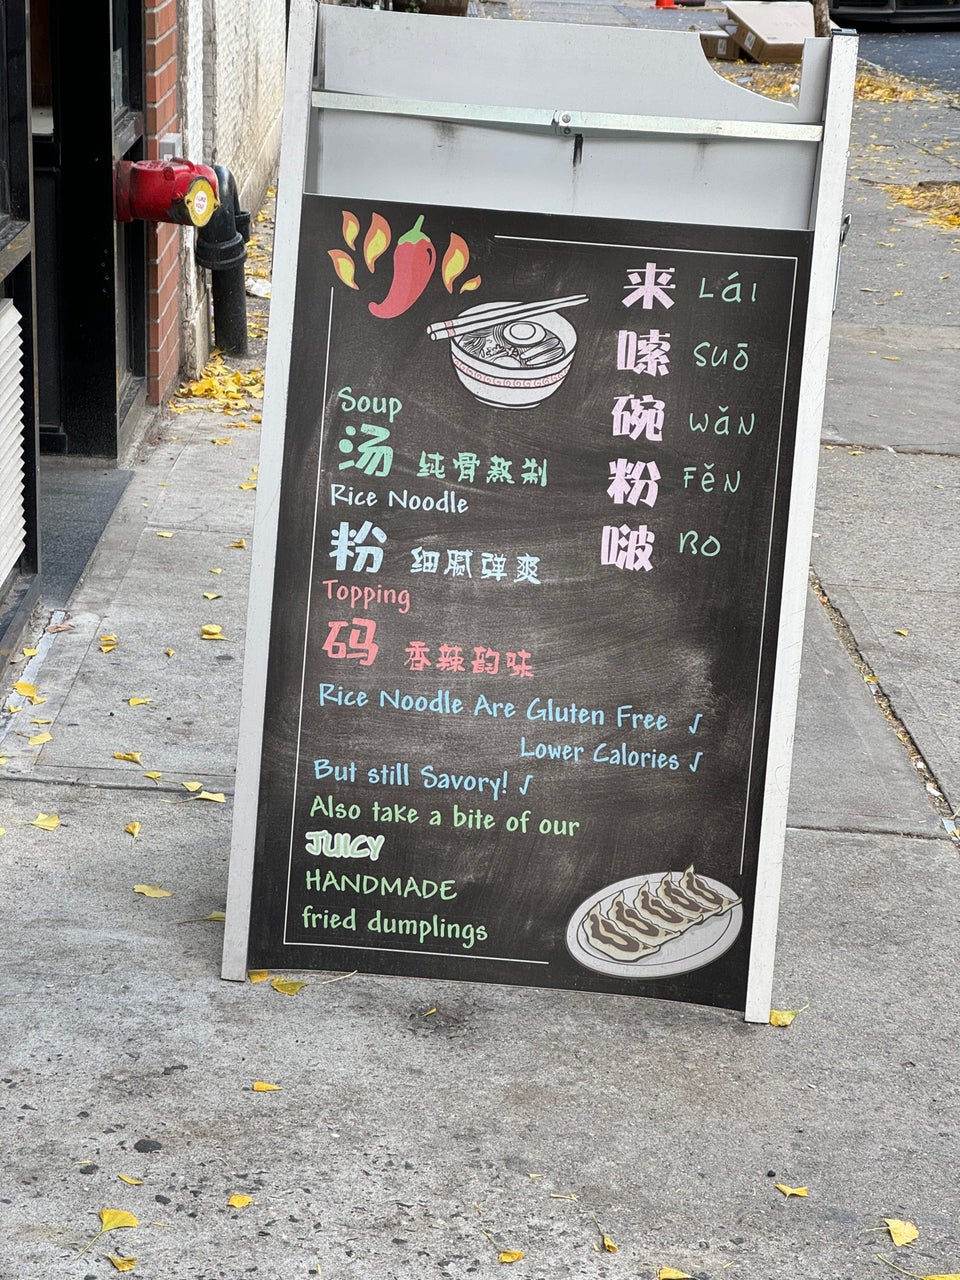 来 Lái
嗦 suō
碗 wǎn
粉 Fěn
啵 Bo
Soup
汤 纯骨熬制
Rice Noodle
粉 细腻弹爽
Topping
码 香辣韵味
Rice Noodle Are Gluten Free √
Lower Calories √
But still Savory! √
Also take a bite of our
JUICY
HANDMADE
fried dumplings